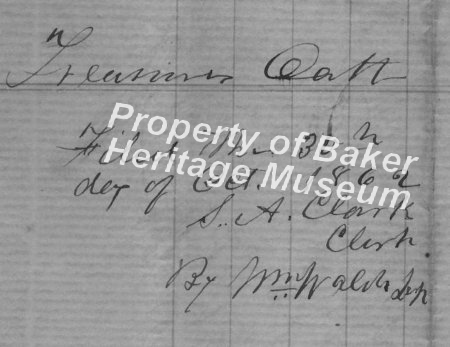 n
Treasurers Oath
Filed this 31th
day of Oct. 1862
S. A. Clark
Clerk.
By Wm Walsh Dp
Property of Baker
Heritage Museum